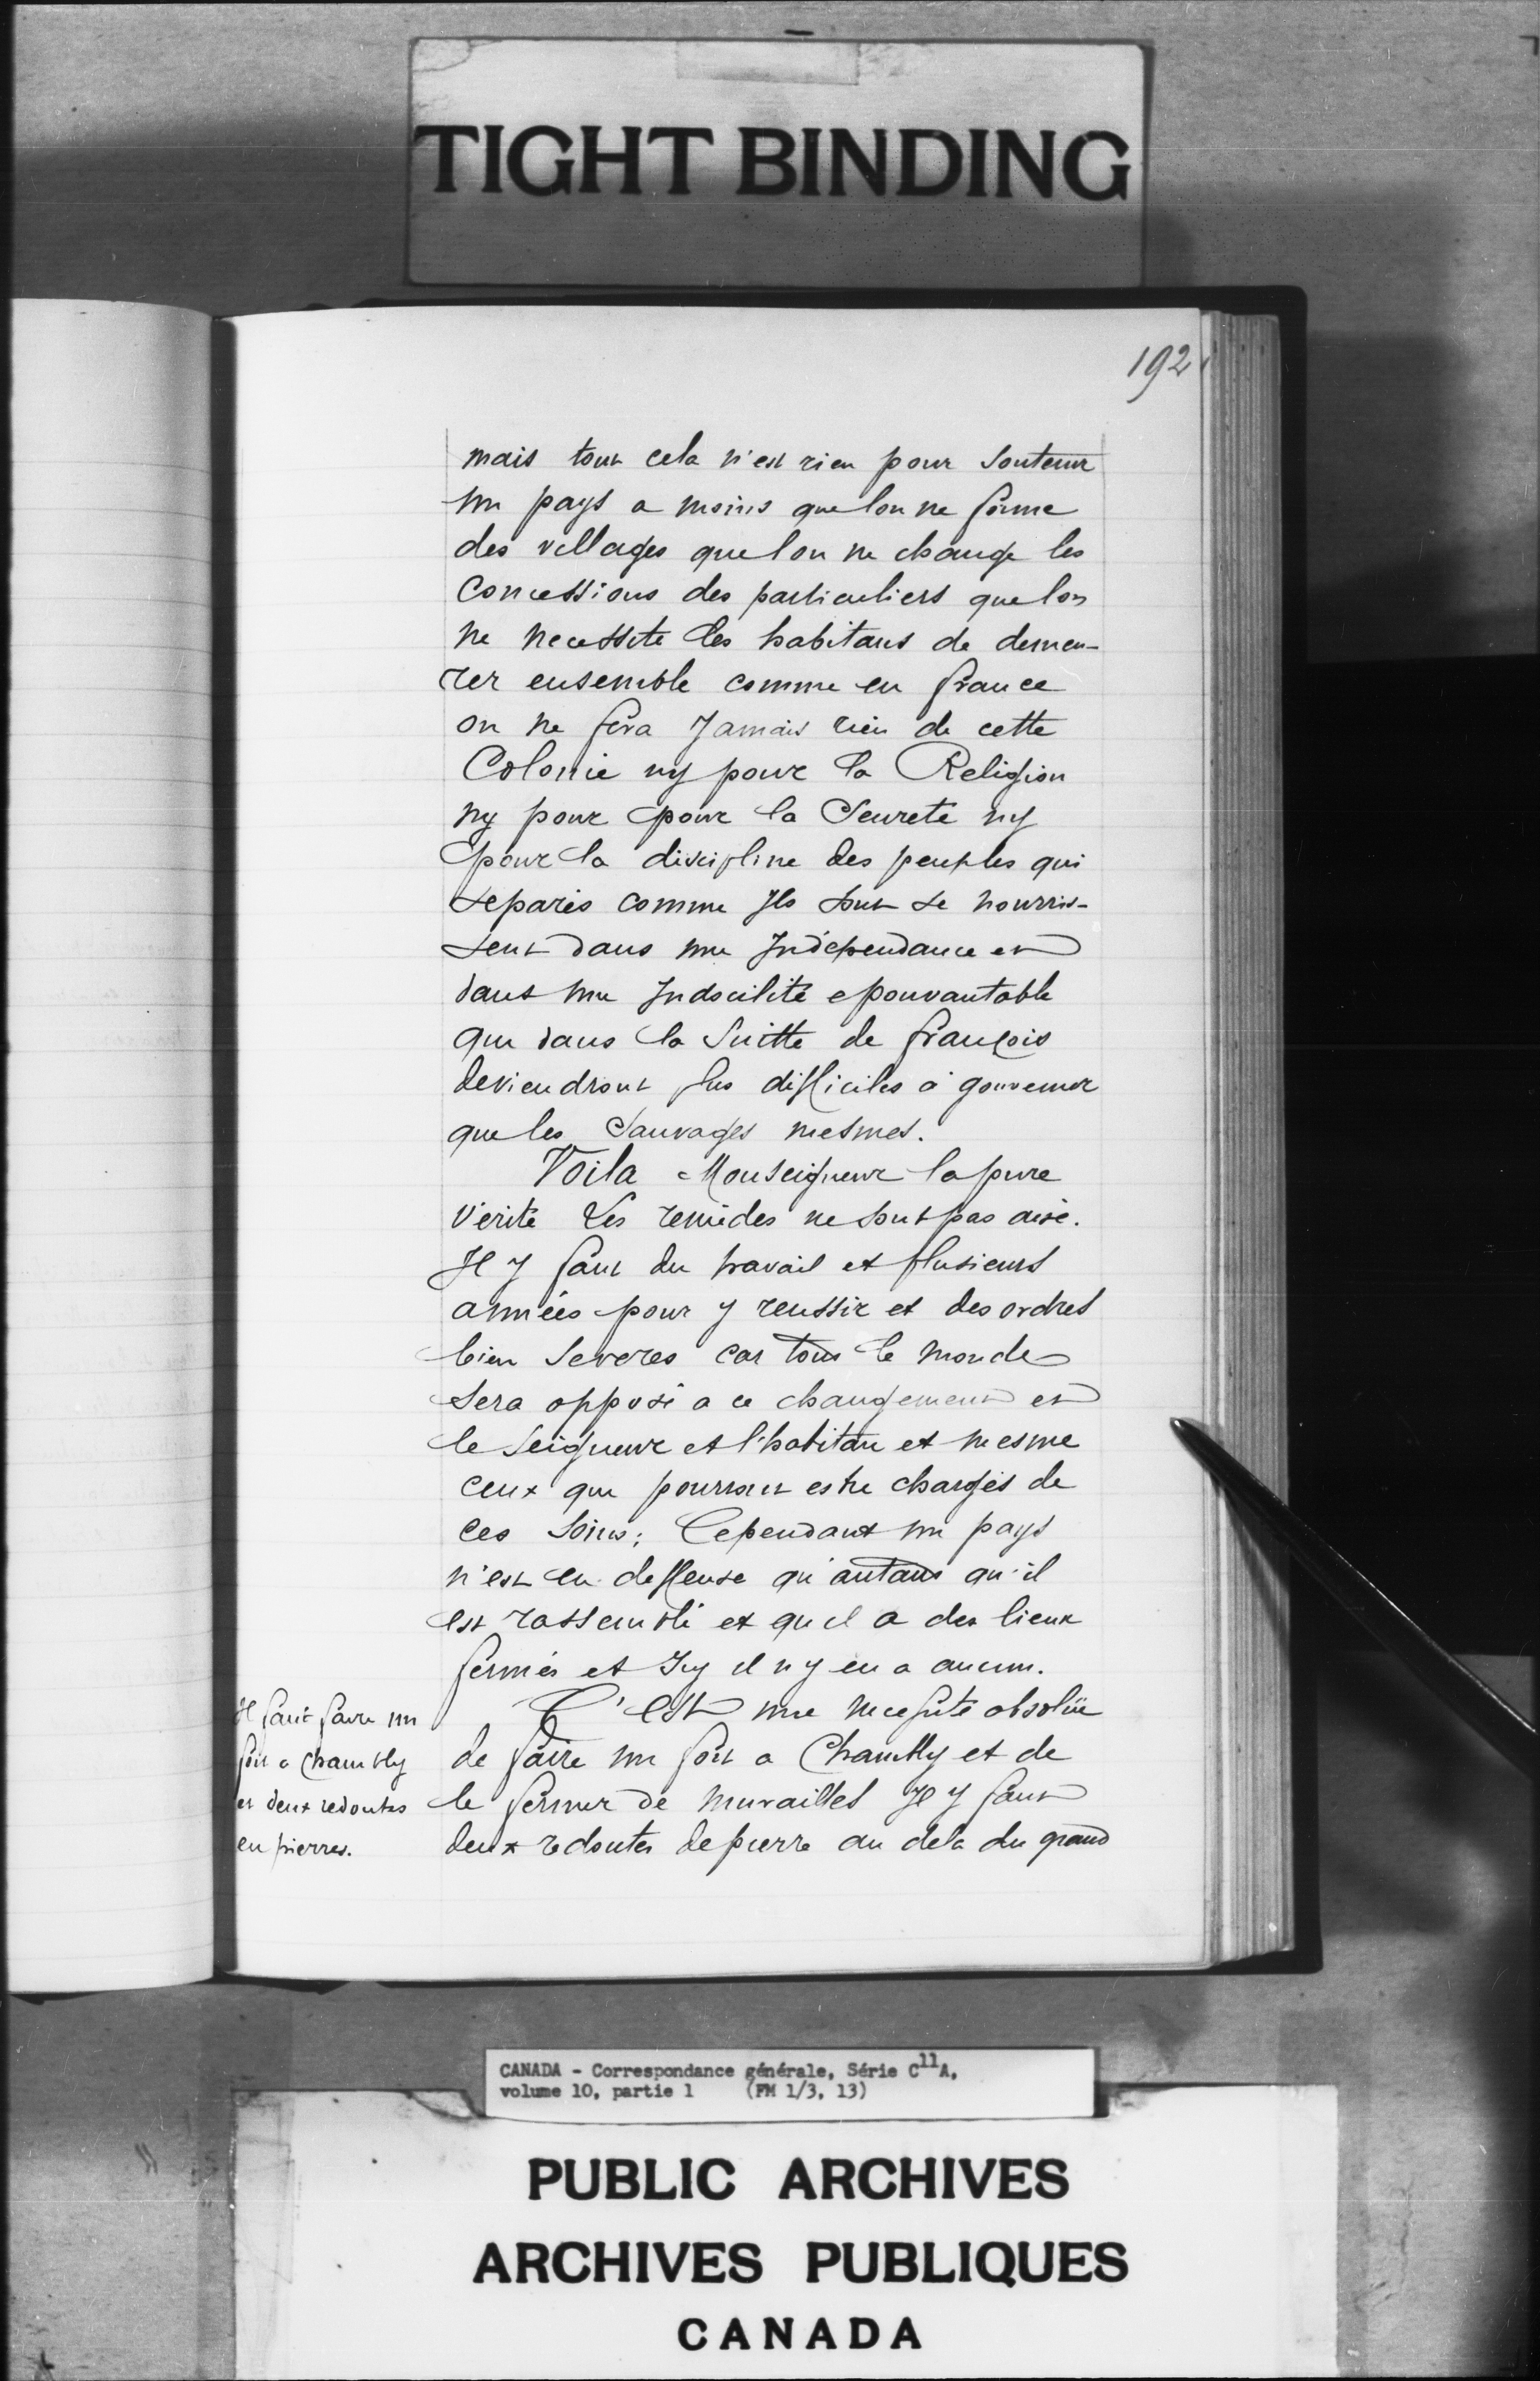 TIGHT BINDING
192
mais tout cela n'est rien pour soutenir
un pays a moins que lon ne forme
des villages que lon ne change les
concessions des particuliers que lon
ne necessite les habitans de demeu-
rer ensemble comme en france
on ne fera Jamais rien de cette
Colonie ny pour la Religion
ny pour pour la Seurete ny
pour la discipline des peuples qui
separés comme Ils sont se nourris-
sent dans une Independance et
dans une Indocilité epouvantable
que dans la Suitte de françois
deviendront plus difficiles à gouverner
que les Sauvages mesmes.
Voila Monseigneur la pure
verité Les remèdes ne sont pas aisé.
Il y faut du travail et plusieurs
années pour y reussir et des ordres
bien Severes car tous le monde
sera opposé a ce changement et
le Seigneur et l'habitan et mesme
ceux que pourront estre chargés de
ces soins; Cependant un pays
n'est en deffense qu'autant qu'il
est rassemblé et quil a des lieux
fermés et Icy il n y en a aucun.
C'est une necessité absolüe
de faire un fort a Chambly et de
le fermer de murailles Il y faut
deux redoutes de pierre au dela du grand
Il faut faire un
fort a Chambly
et deux redoutes
en pierres.
CANADA - Correspondance générale, Série C11A,
volume 10, partie 1 (FM 1/3, 13)
PUBLIC ARCHIVES
ARCHIVES PUBLIQUES
CANADA